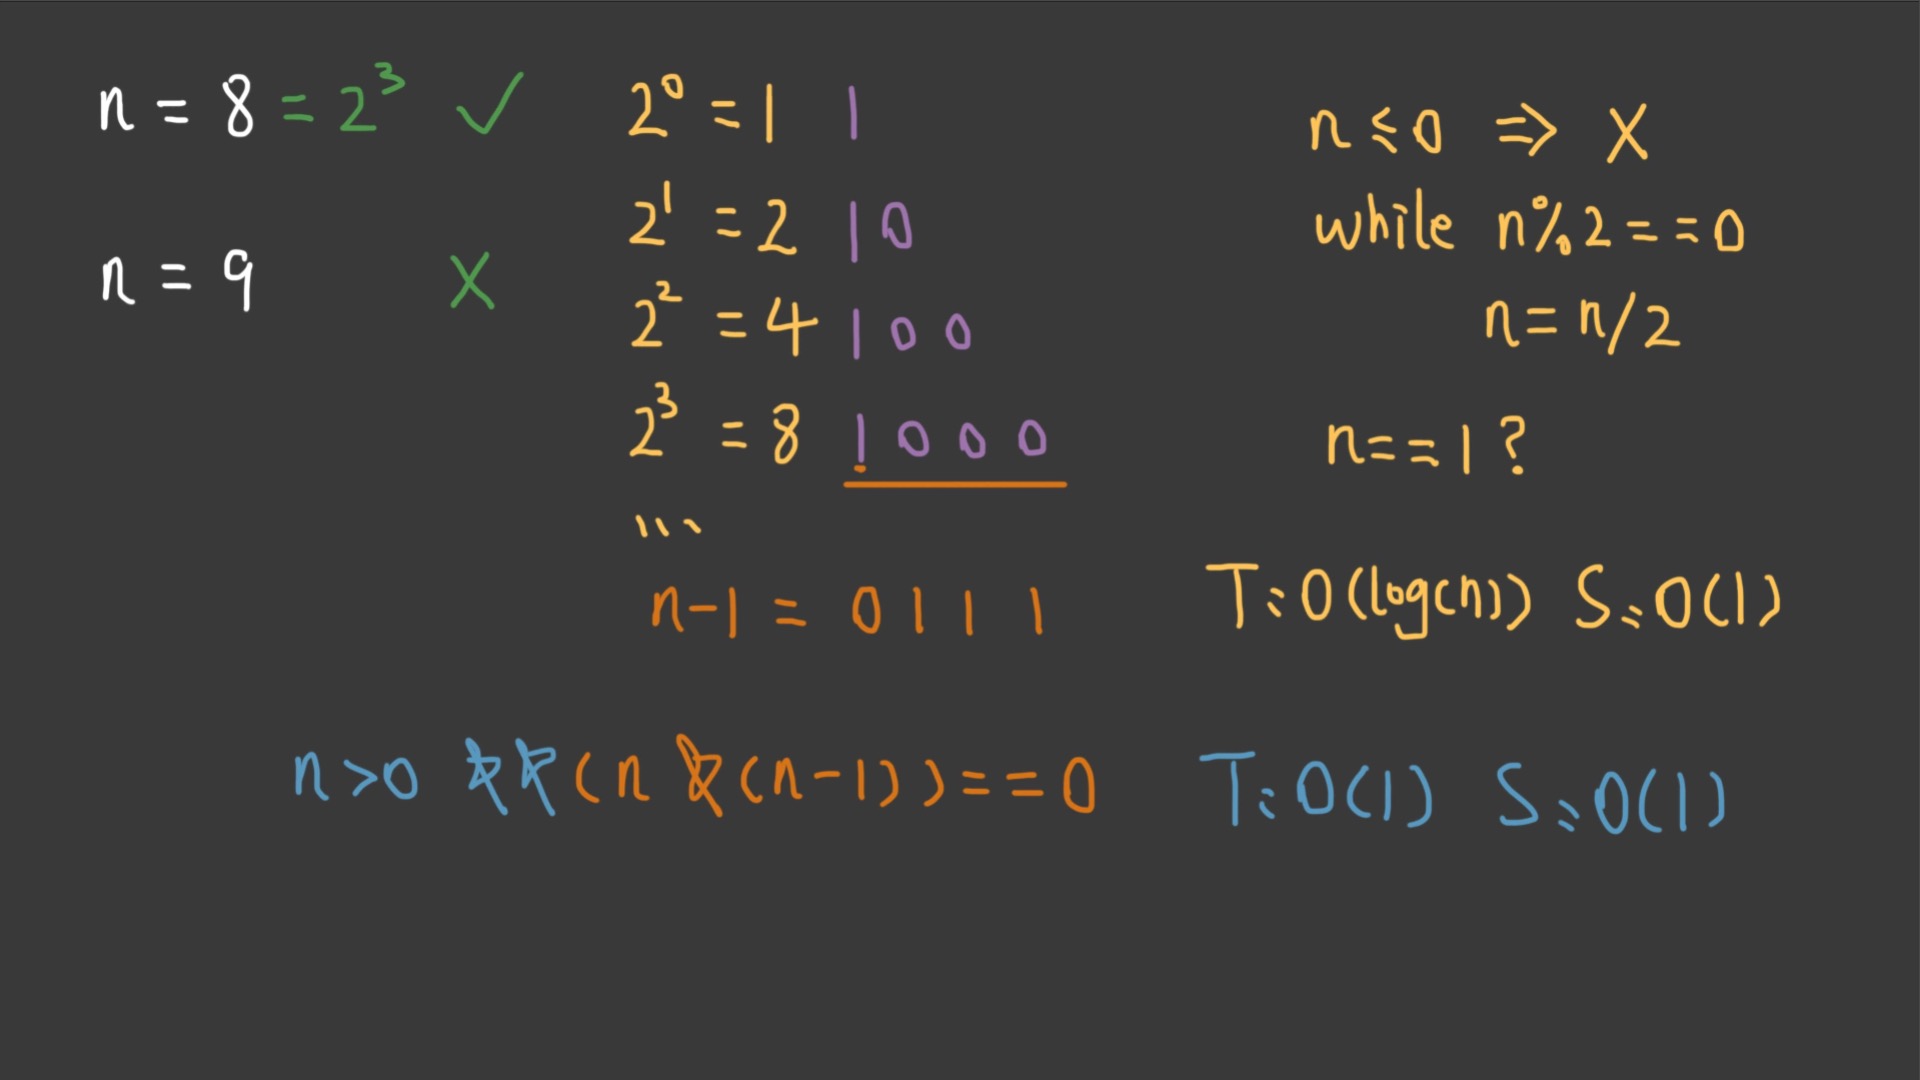 n = 8 = 2³ ✓
n = 9 X
2⁰ = 1 1
2¹ = 2 10
2² = 4 100
2³ = 8 1000
...
n-1 = 0111
n ≤ 0 ⇒ X
while n%2==0
n=n/2
n==1?
T:O(log(n)) S:O(1)
n>0 && (n & (n-1))==0
T:O(1) S:O(1)